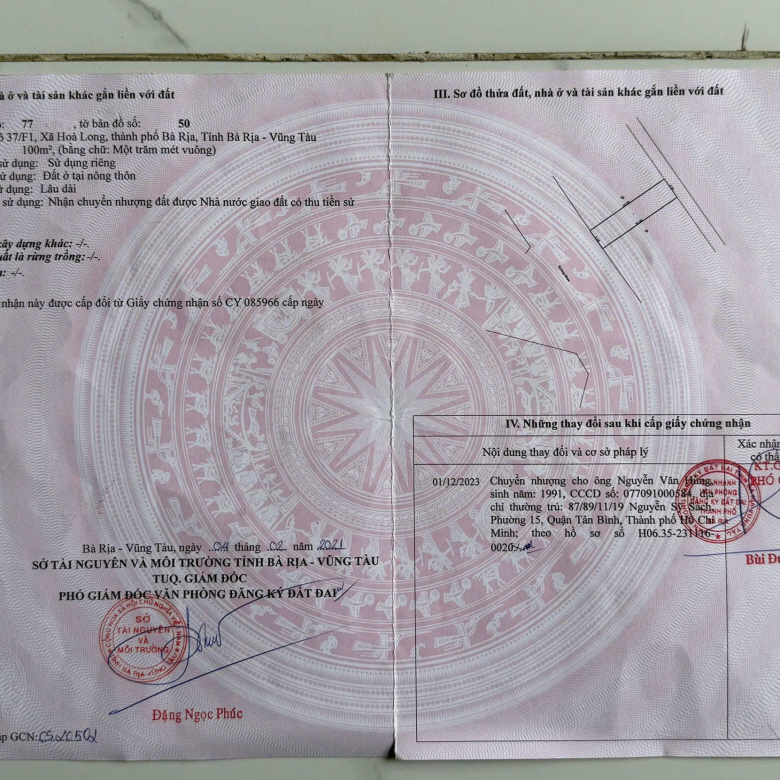 à ở và tài sản khác gắn liền với đất
77 , tờ bản đồ số: 50
37/F1, Xã Hoà Long, thành phố Bà Rịa, Tỉnh Bà Rịa - Vũng Tàu
100m², (bằng chữ: Một trăm mét vuông)
sử dụng: Sử dụng riêng
sử dụng: Đất ở tại nông thôn
sử dụng: Lâu dài
sử dụng: Nhận chuyển nhượng đất được Nhà nước giao đất có thu tiền sử
xây dựng khác: -/-.
ất là rừng trồng:-/-.
: -/-.
nhận này được cấp đổi từ Giấy chứng nhận số CY 085966 cấp ngày
Bà Rịa - Vũng Tàu, ngày 04 tháng 02 năm 2021
SỞ TÀI NGUYÊN VÀ MÔI TRƯỜNG TỈNH BÀ RỊA - VŨNG TÀU
TUQ. GIÁM ĐỐC
PHÓ GIÁM ĐỐC VĂN PHÒNG ĐĂNG KÝ ĐẤT ĐAI
SỞ
TÀI NGUYÊN
VÀ
MÔI TRƯỜNG
Đặng Ngọc Phúc
p GCN:
III. Sơ đồ thửa đất, nhà ở và tài sản khác gắn liền với đất
IV. Những thay đổi sau khi cấp giấy chứng nhận
Nội dung thay đổi và cơ sở pháp lý
Xác nhận
có thẩ
KT.
PHÓ
01/12/2023
Chuyển nhượng cho ông Nguyễn Văn Hùng,
sinh năm: 1991, CCCD số: 077091000584, địa
chỉ thường trú: 87/89/11/19 Nguyễn Sỹ Sách,
Phường 15, Quận Tân Bình, Thành phố Hồ Chí
Minh; theo hồ sơ số H06.35-231116-
0020
CHI NHÁNH
VĂN PHÒNG
ĐĂNG KÝ ĐẤT ĐAI
THÀNH PHỐ
BÀ RỊA
Bùi Đứ